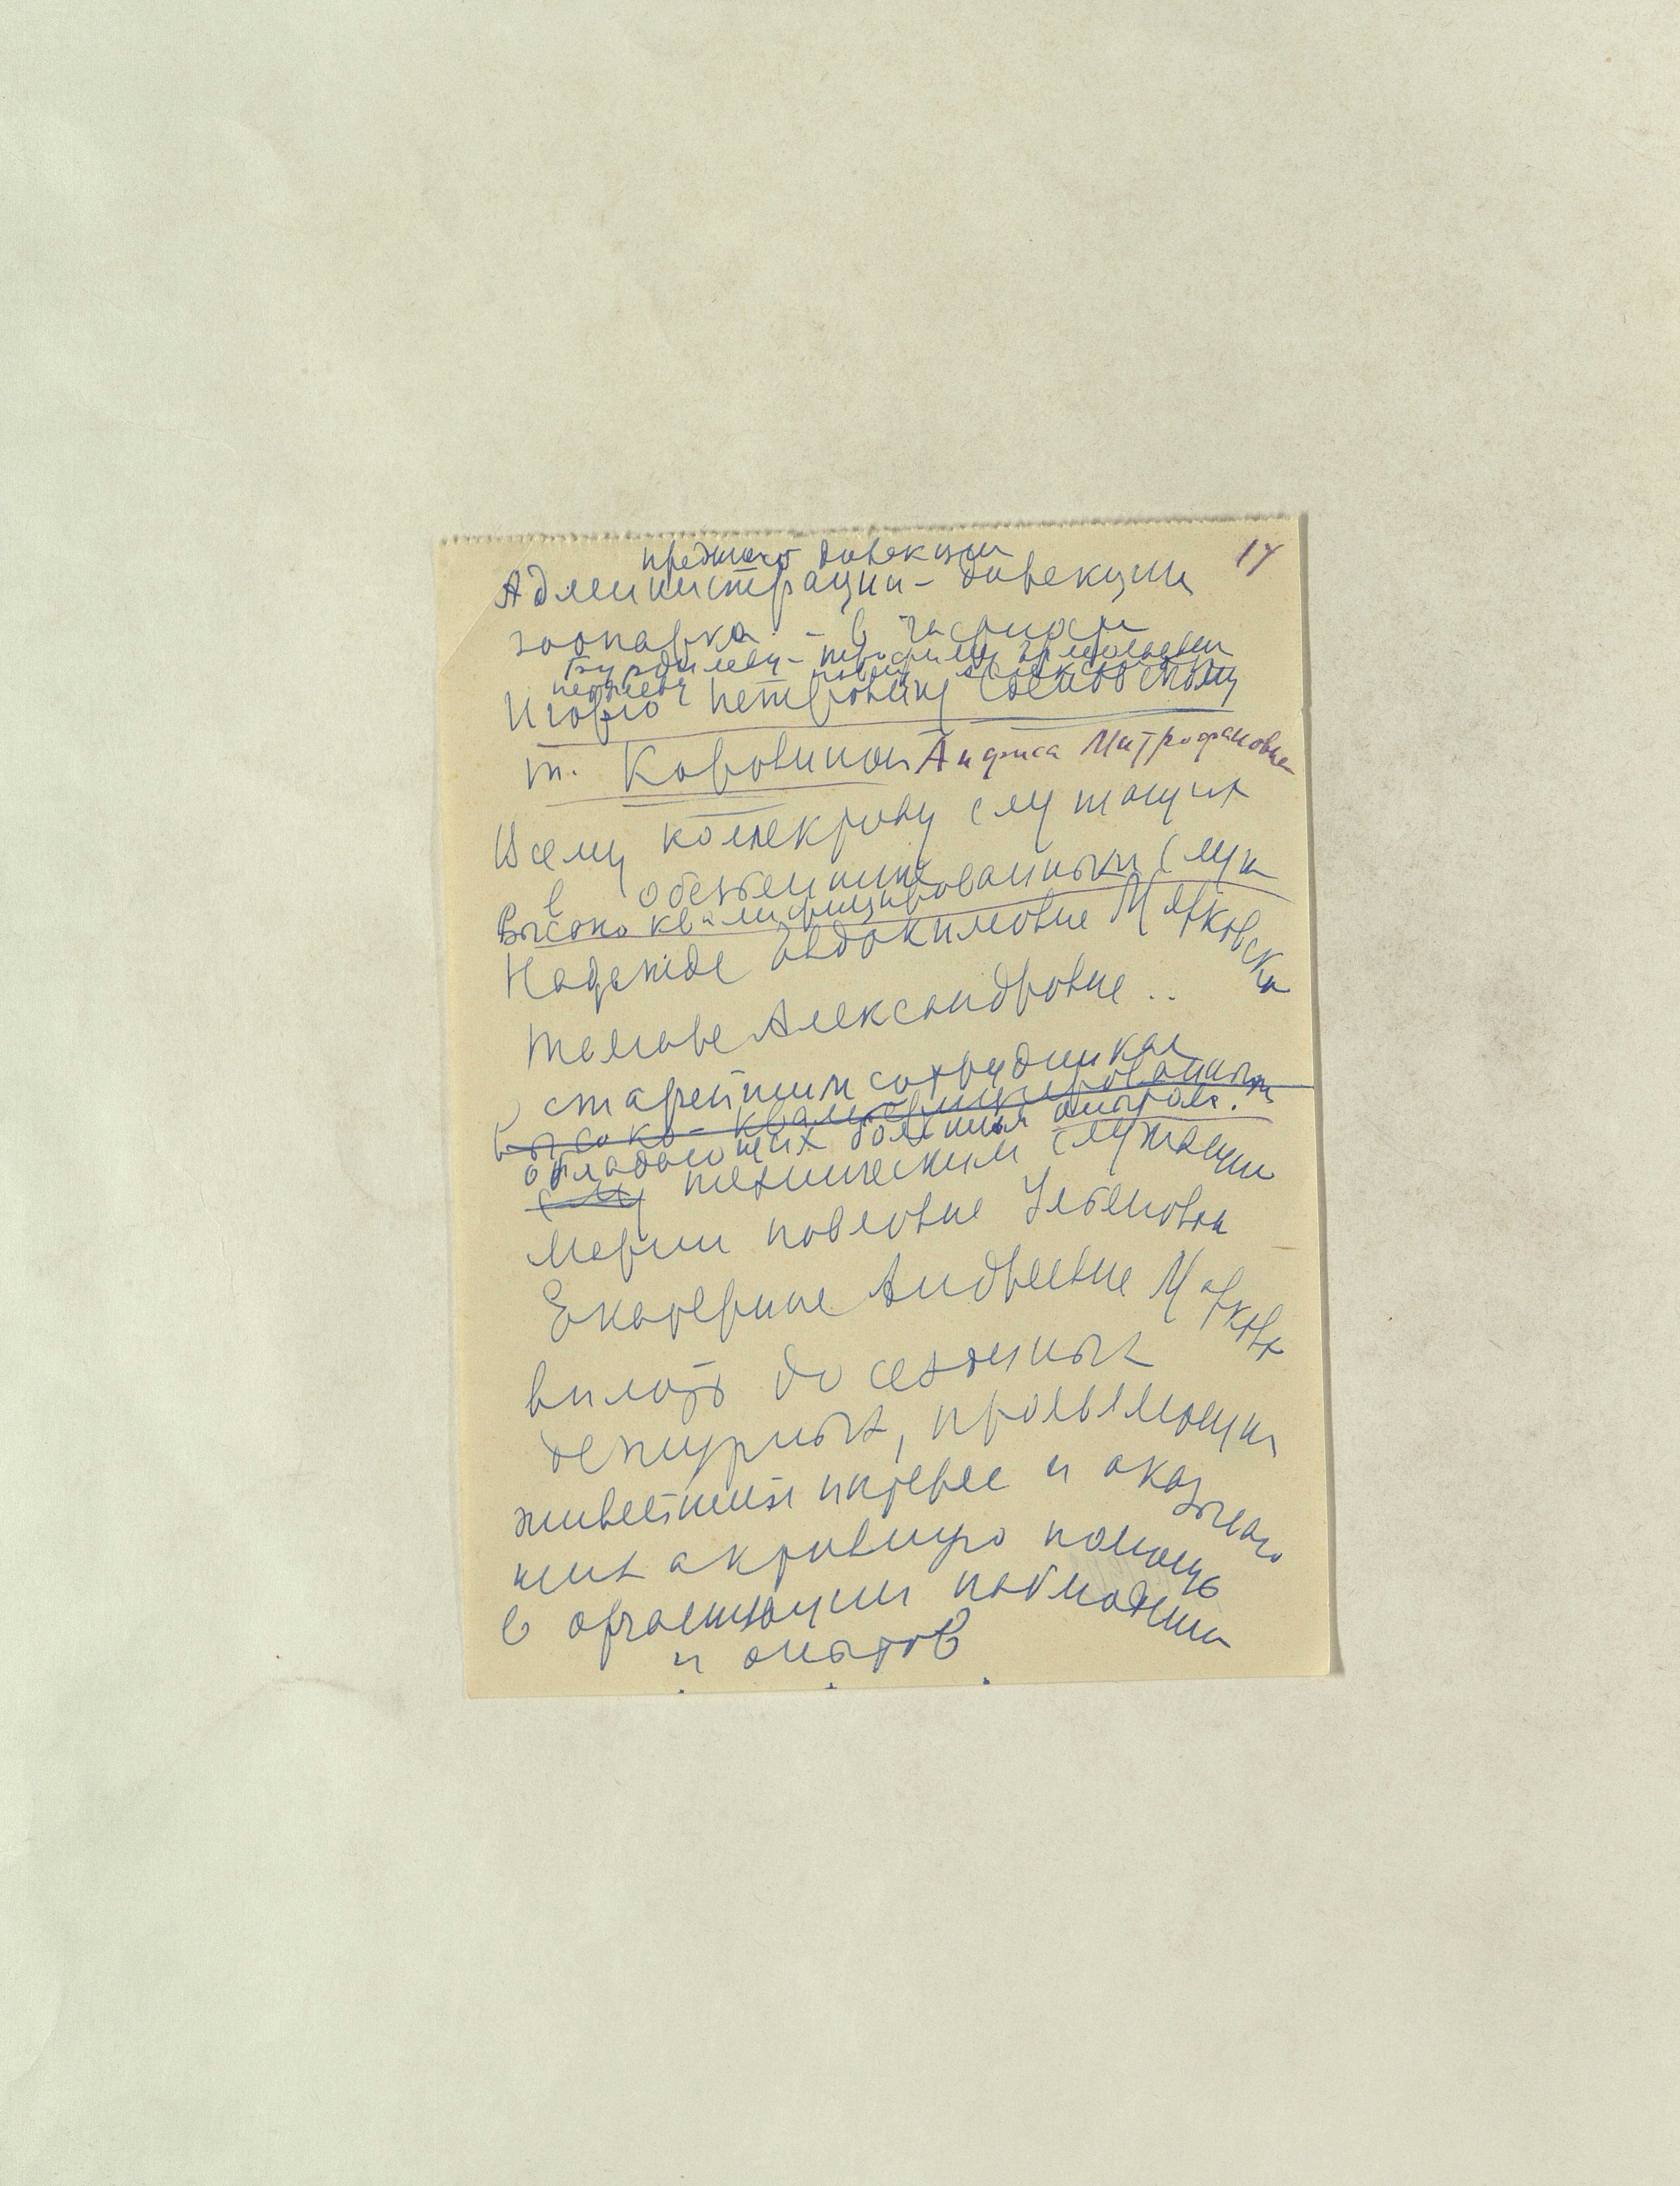 17
прежней дирекции
Администрации - дирекции
зоопарка - в частности
Игорю Петровичу Сосновскому
т. Коровиной Анфиса Митрофановне
Всему коллективу служащих
в обезьяннике
Высоко квалифицированным служ
Надежде Евдокимовне Марковска
Тамаре Александровне ..
старейшим сотрудникам
высоко-квалифицированным
обладающих большим опытом.
слу техническим служащим
Марии Павловне Устиновой
Екатерине Андреевне Марковой
вплоть до сезонных
дежурных, проявляющих
живейший интерес и оказываю
щих активную помощь
в организации наблюдени
и опытов